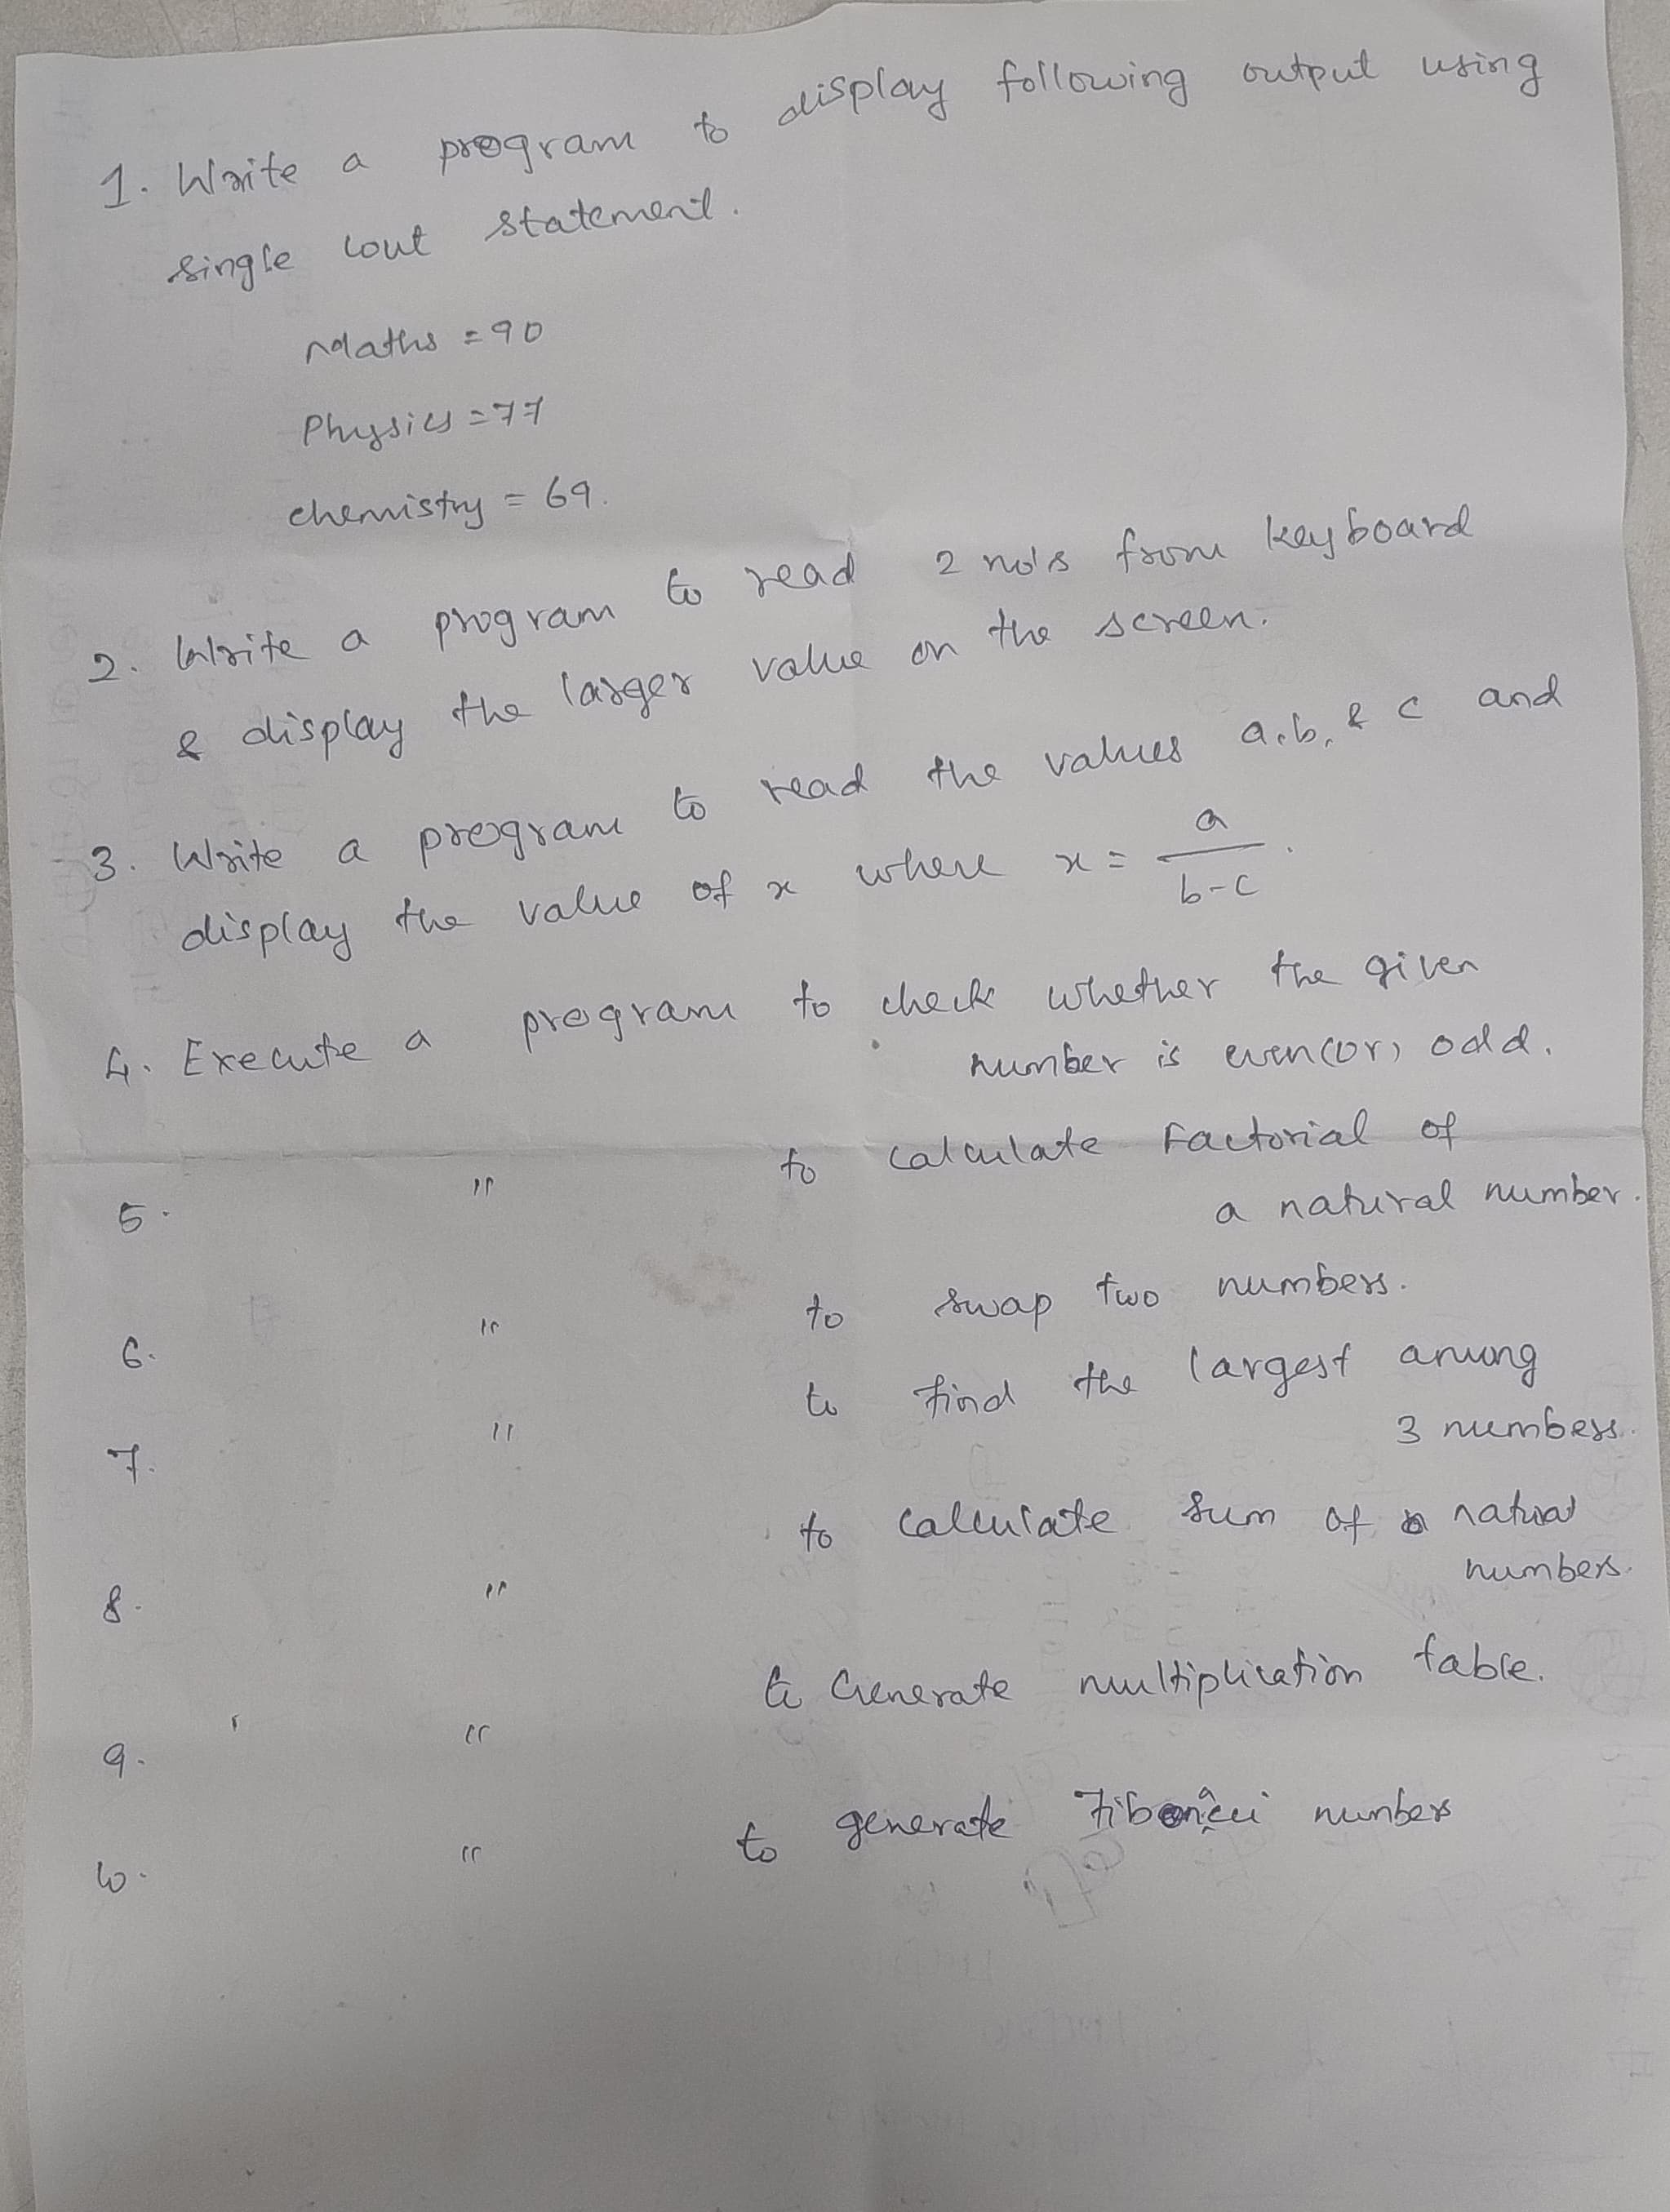 1. Write a program to display following output using
single cout statement.
Maths = 90
Physics = 77
chemistry = 69.
2. Write a program to read 2 no's from keyboard
& display the larger value on the screen.
3. Write a program to read the values a, b, & c and
display the value of x where x = a / b-c .
4. Execute a program to check whether the given
number is even (or) odd.
5. " to calculate Factorial of
a natural number.
6. " to swap two numbers.
7. " to find the largest among
3 numbers.
8. " to calculate sum of natural
numbers.
9. " to Generate multiplication table.
10. " to generate Fibonacci numbers